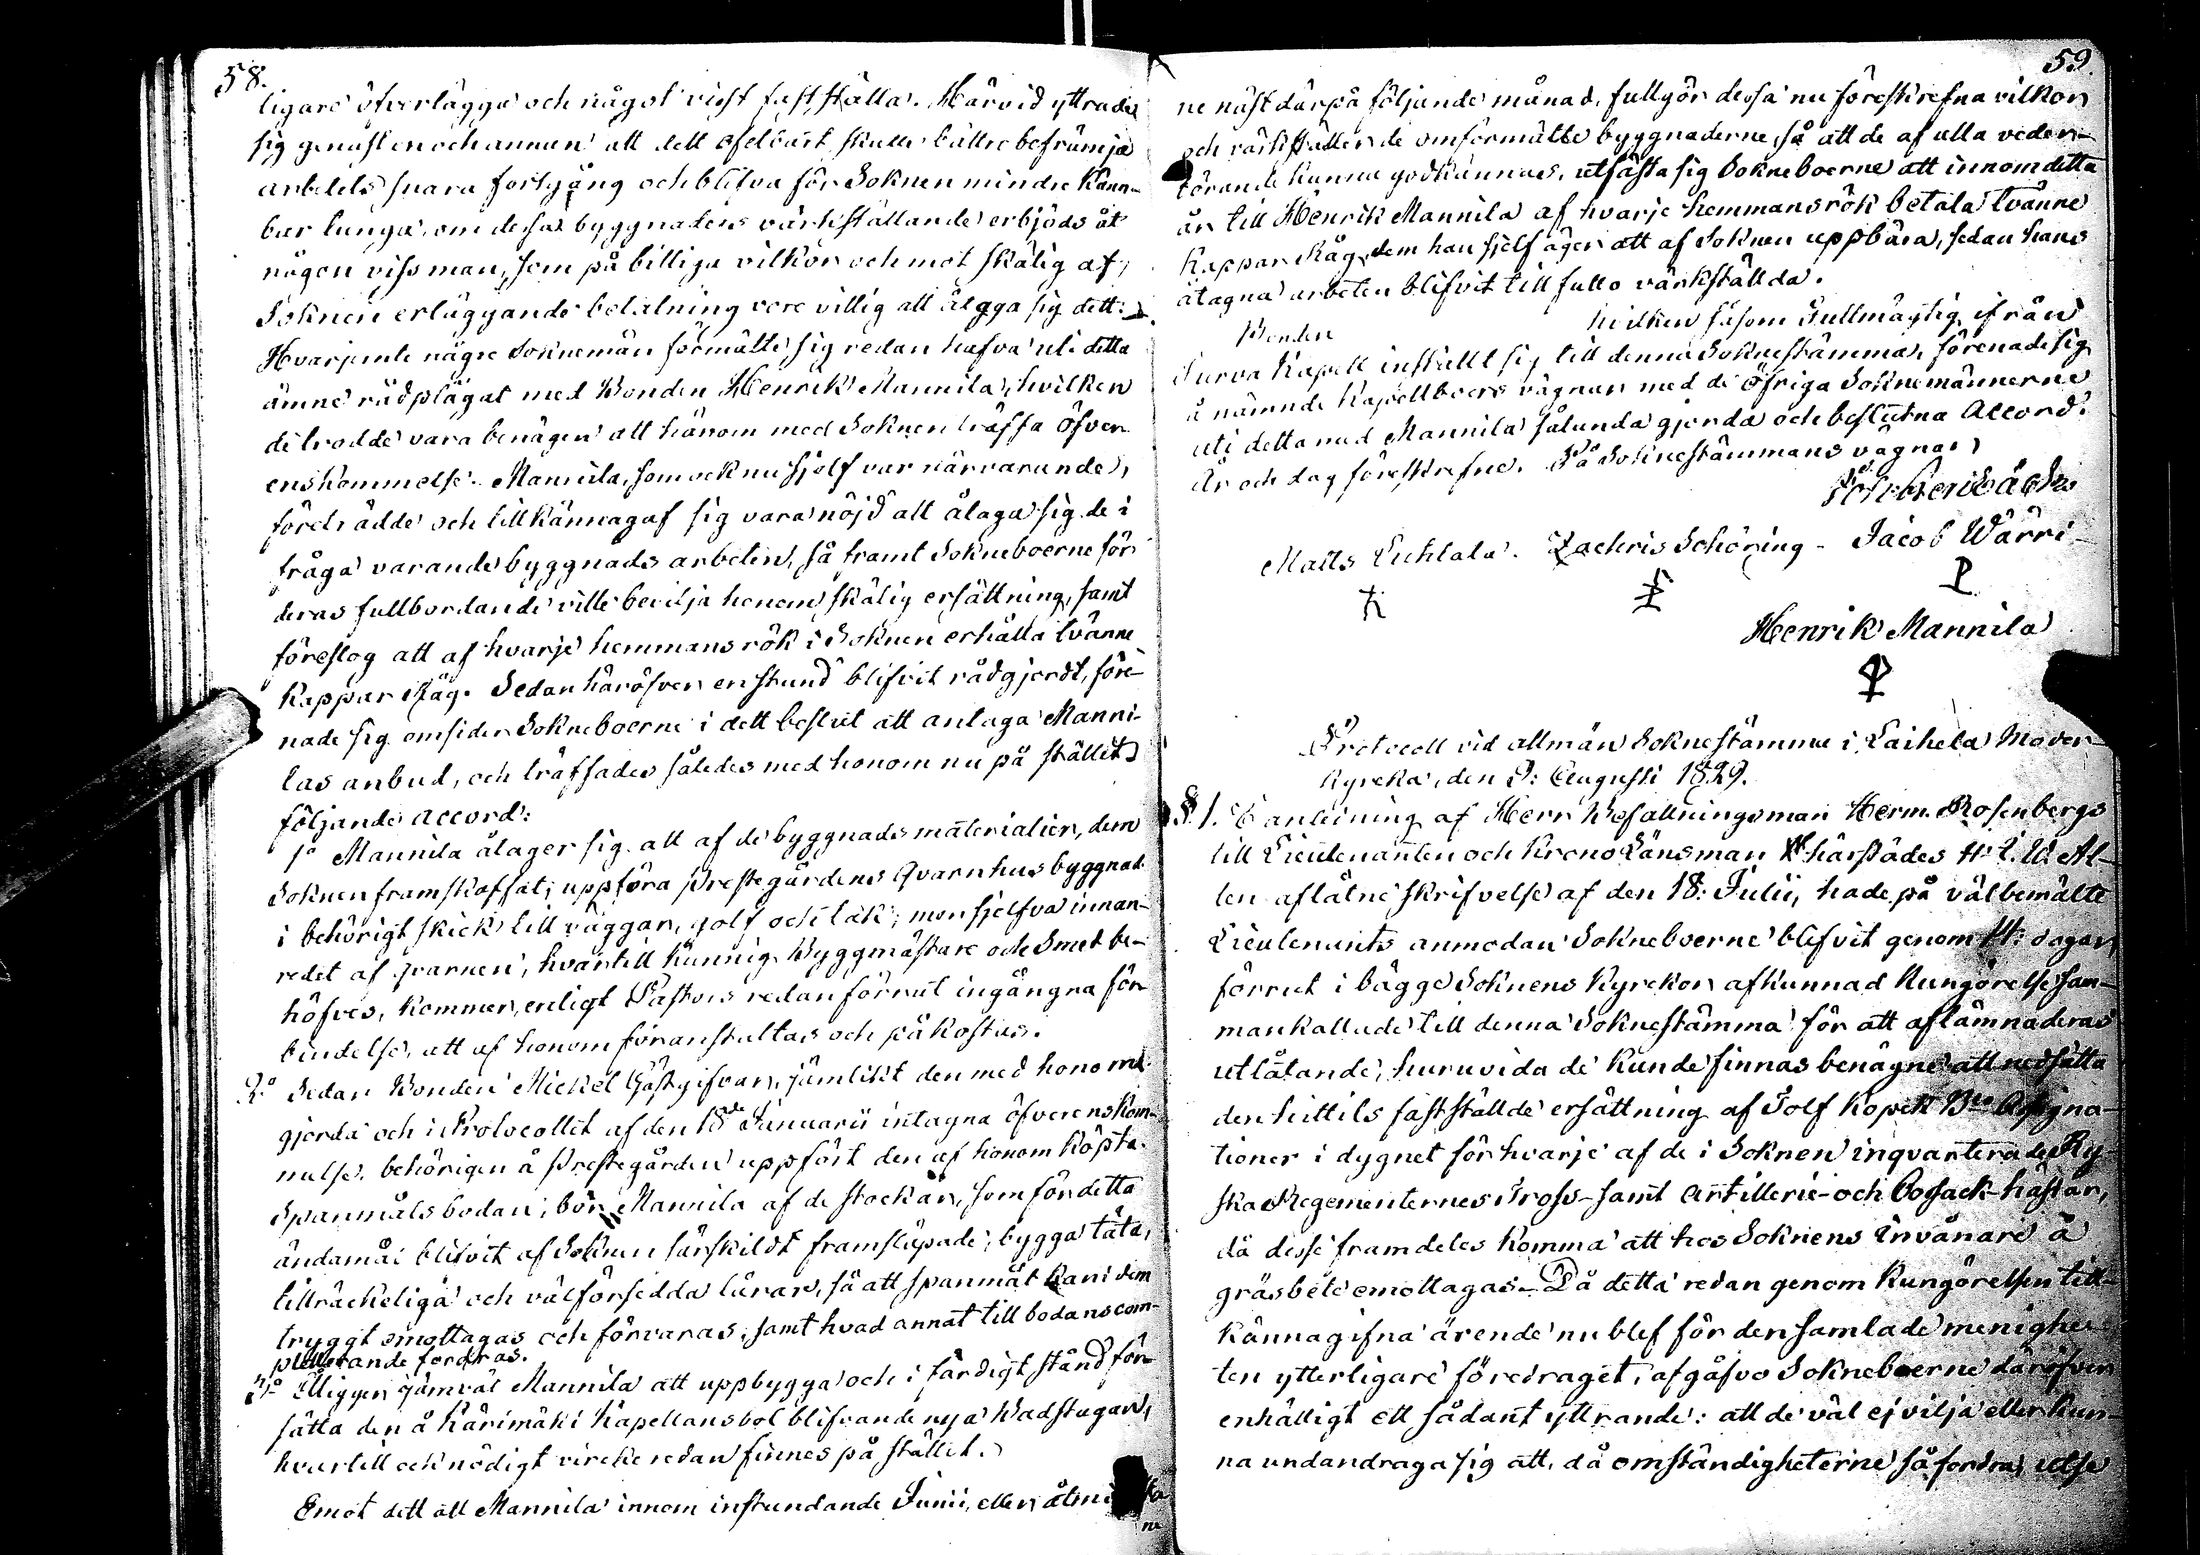 58.
ligare öfverlägga och något visst fastställa. Härvid yttrade
sig genast en och annan att dett ofelbart skulle bättre befrämja
arbetets snara fortgång och blifva för Soknen mindre känn-
bar tunga, om dessa byggnaders värkställande erbjöds åt
någon viss man, som på billiga vilkor och mot skälig af
Soknen erläggande betalning vore villig att åtaga sig dett.
Hvarjemte någre Soknemän förmälte sig redan hafva uti detta
ämne rådplägat med Bonden Henrik Mannila, hvilken
de trodde vara benägen att härom med Soknen träffa öfver-
enskommelse. Mannila, som ock nu sjelf var närvarande,
företrädde och tillkännagaf sig vara nöjd att åtaga sig de i
fråga varande byggnads arbeten, så framt Sokneboerne för
deras fullbordande ville bevilja honom skälig ersättning, samt
föreslog att af hvarje hemmansrök i Soknen erhålla tvänne
kappar Råg. Sedan häröfver en stund blifvit rådgjordt, före-
nade sig omsider Sokneboerne i dett beslut att antaga Manni-
las anbud, och träffades således med honom nu på stället
följande accord:
1o Mannila åtager sig att af de byggnads materialier, dem
Soknen framskaffat, uppföra Prestegårdens Qvarnhus byggnad
i behörigt skick till väggar, golf och tak; men sjelfva innan-
redet af qvarnen, hvartill kunnig Byggmästare och Smed be-
höfves, kommer, enligt Pastors redan förrut ingångna för-
bindelse, att af honom föranstaltas och påkostas.
2o Sedan Bonden Mickel Gästgifvar, jämlikt den med honom
gjorda och i Protocollet af den 18de Januarii intagna öfverenskom-
melse, behörigen å Prestegården uppfört den af honom köpta
Spanmåls bodan; bör Mannila af de stockar, som för detta
ändamål blifvit af Soknen särskildt framsläpade, bygga täta,
tillräckeliga och väl försedda lårar, så att spanmål kan i dem
tryggt emottagas och förvaras, samt hvad annat till bodans com-
pletterande fordras.
3o Åligger jämväl Mannila att uppbygga och i färdigt stånd för-
sätta den å Kärimäki Kapellansbol blifvande nya Badstugan,
hvartill ock nödigt virke redan finnes på stället.
Emot dett att Mannila innom instundande Junii, eller åtmi
ne
59.
ne näst därpå följande månad, fullgör dessa nu föreskrefna vilkor
och värkställer de omförmälte byggnaderne, så att de af alla veder-
börande kunna godkännas, utfästa sig Sokneboerne att innom detta
år till Henrik Mannila af hvarje hemmansrök betala tvänne
Kappar Råg, dem han sjelf äger att af Soknen uppbära, sedan hans
åtagna arbeten blifvit till fullo värkställda.
Bonden hvilken såsom Fullmägtig ifrån
Jurva Kapell inställt sig till denna Soknestämma, förenade sig
å nämnde Kapellboers vägnar med de öfriga Soknemännerne
uti detta med Mannila sålunda gjorda och beslutna Accord.
År och dag föreskrefne. På Soknestämmans vägnar
Matts Zachris Schöring. Jacob Wärri
Henrik Mannila
Protocoll vid allmän Soknestämma i Laihela Moder-
kyrcka, den 9: Augusti 1829.
§. 1. I anledning af Herr Befallningsman Herm. Rosenbergs
till Lieutenanten och Krono Länsman härstädes Hr C. W. Al-
len aflåtne skrifvelse af den 18: Julii, hade på välbemälte
Lieutenants anmodan Sokneboerne blifvit genom 14: dagar
förrut i bägge Soknens Kyrckor afkunnad Kungörelse sam-
mankallade till denna Soknestämma för att aflämna deras
utlåtande, huruvida de kunde finnas benägne att nedsätta
den hittils fastställde ersättning af Tolf kopek B:co Assigna-
tioner i dygnet för hvarje af de i Soknen inqvarterade Ry-
ska Regementernes Tross- samt Artillerie- och Cosack-hästar,
då desse framdeles komma att hos Soknens Invånare å
gräsbete emottagas. Då detta redan genom Kungörelsen till-
kännagifna ärende nu blef för den samlade menighe-
ten ytterligare föredraget, afgåfvo Sokneboerne däröfver
enhälligt ett sådant yttrande: att de väl ej vilja eller kun-
na undandraga sig att, då omständigheterne så fordra, utse